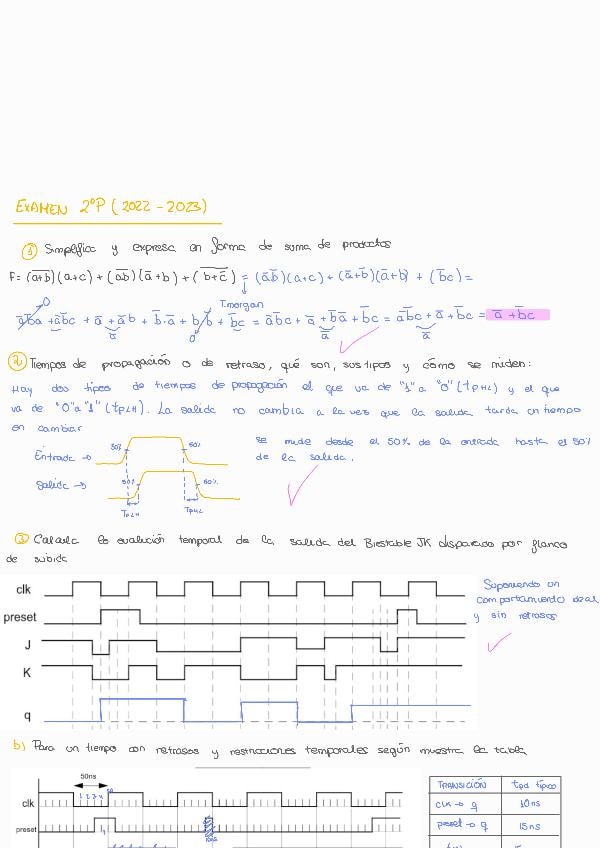 EXAMEN 2ºP (2022-2023)
① Simplifica y expresa en forma de suma de productos
0
T.morgan
0
② Tiempos de propagación o de retraso, qué son, sus tipos y cómo se miden:
Hay dos tipos de tiempos de propagación el que va de "1" a "0" (tPHL) y el que
va de "0" a "1" (tPLH). La salida no cambia a la vez que la salida tarda un tiempo
en cambiar
50%
50%
Entrada →
se mide desde el 50% de la entrada hasta el 50%
de la salida.
Salida →
50%
50%
TPLH
TPHL
③ Calcula la evolución temporal de la salida del Biestable JK disparado por flanco
de subida
clk
preset
J
K
q
Suponiendo un
comportamiento ideal
y sin retrasos
b) Para un tiempo con retrasos y restricciones temporales según muestra la tabla
50ns
1 2 3 4 5
clk
preset
TRANSICIÓN tpd típico
clk → q 10ns
preset → q 15ns